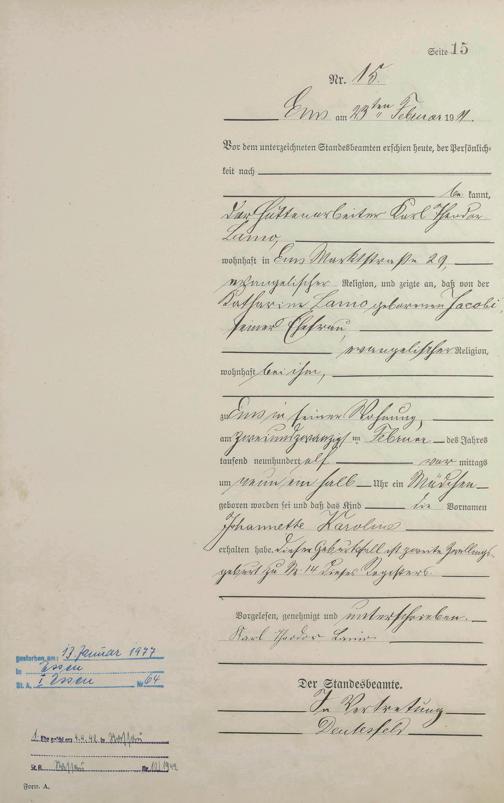 Seite 15
Nr. 15.
Ems am 23ten Februar 1911.
Vor dem unterzeichneten Standesbeamten erschien heute, der Persönlich-
keit nach
be kannt,
der Hüttenarbeiter Karl Theodor
Lamo,
wohnhaft in Ems Marktstraße 29,
evangelischer Religion, und zeigte an, daß von der
Katharine Lamo geborenen Jacobi,
seiner Ehefrau,
evangelischer Religion,
wohnhaft bei ihm,
zu Ems in seiner Wohnung,
am zweiundzwanzigsten Februar des Jahres
tausend neunhundert elf vor mittags
um neun ein halb Uhr ein Mädchen
geboren worden sei und daß das Kind die Vornamen
Johannette Karoline
erhalten habe. Dieser Geburtsfall ist zweite Zwillings-
geburt zu Nr. 14 dieses Registers.
Vorgelesen, genehmigt und unterschrieben.
Karl Theodor Lamo
Der Standesbeamte.
In Vertretung
gestorben am: 13 Januar 1977
in Essen
St. A. I Essen Nr. 64
1. Ehe geschl. am 4.4.42 in Nassau
St. A. Nassau Nr. /1942
Form. A.